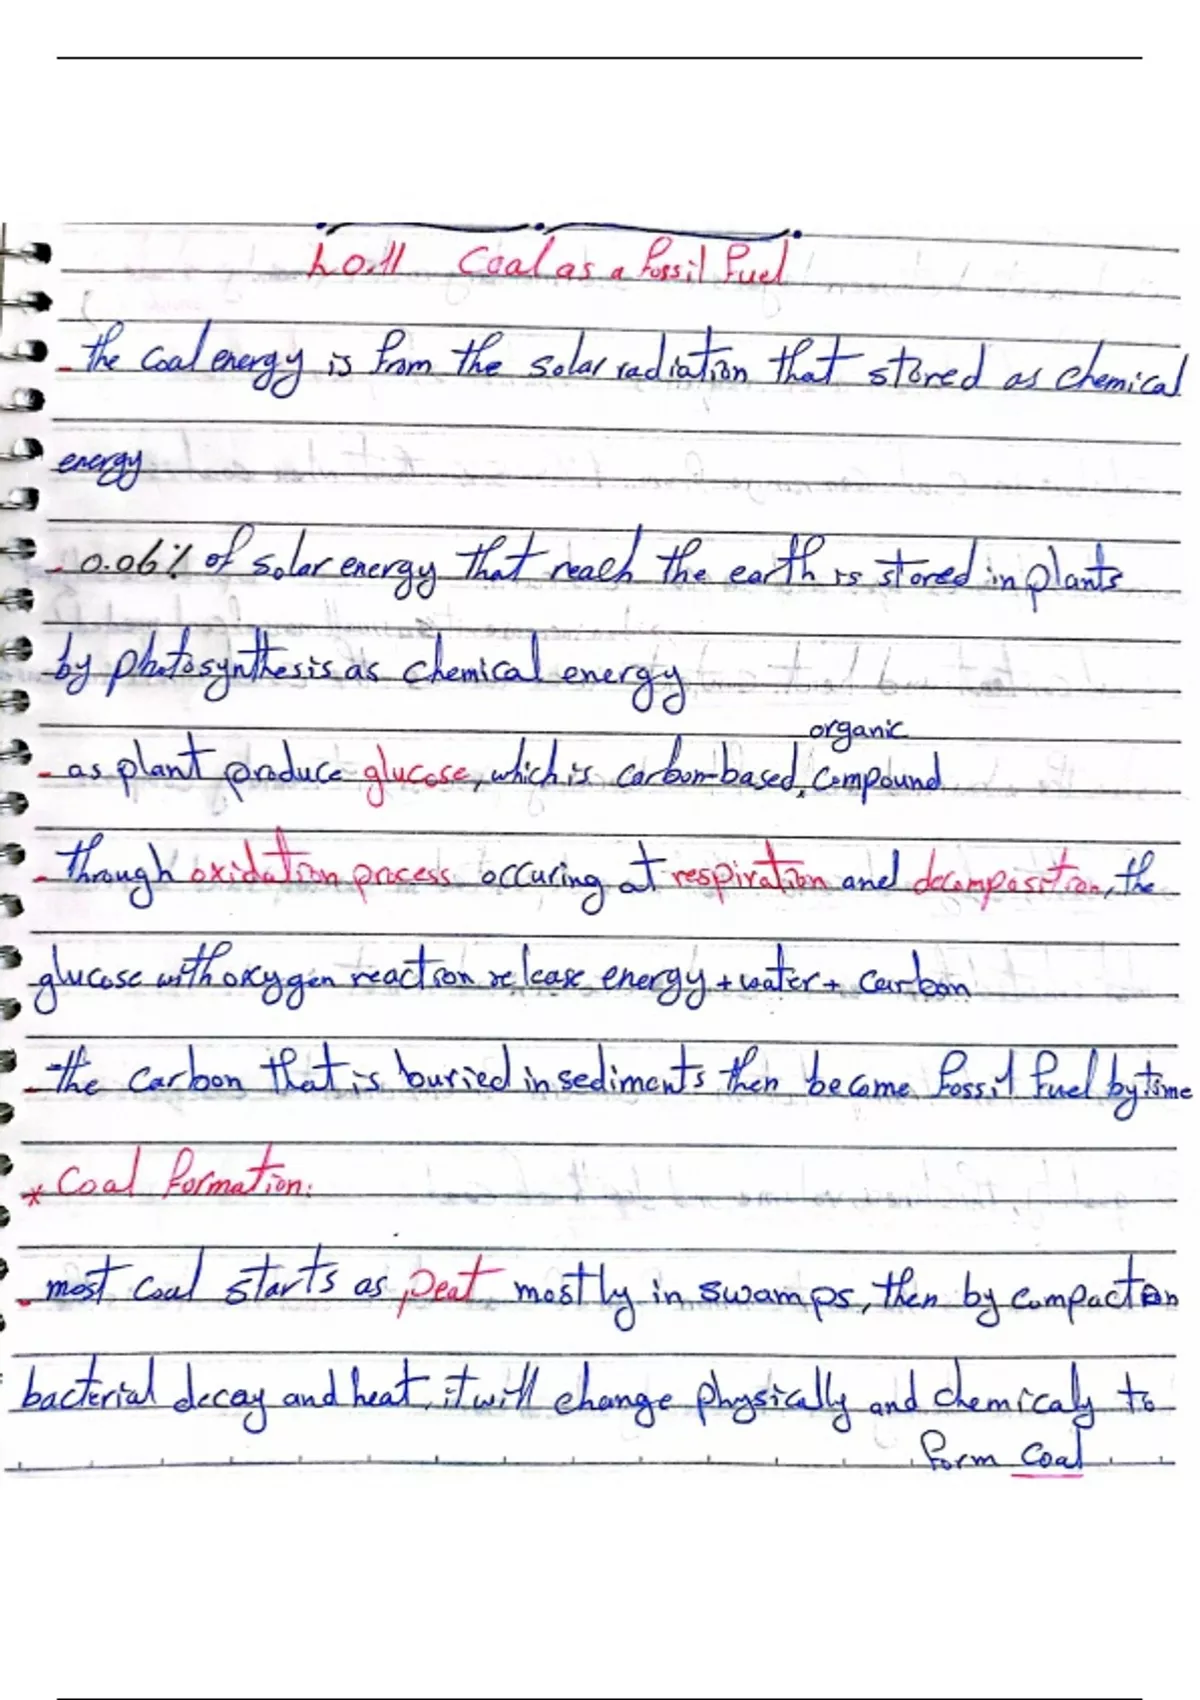 L.O.11 Coal as a fossil fuel
- the coal energy is from the solar radiation that stored as chemical
energy
- 0.06% of solar energy that reach the earth is stored in plants
by photosynthesis as chemical energy
organic
- as plant produce glucose, which is carbon-based, compound
- through oxidation process occuring at respiration and decomposition, the
glucose with oxygen reaction release energy + water + carbon
- the carbon that is buried in sediments then become fossil fuel by time
* Coal formation:
- most coal starts as peat mostly in swamps, then by compaction
bacterial decay and heat, it will change physically and chemicaly to
form coal